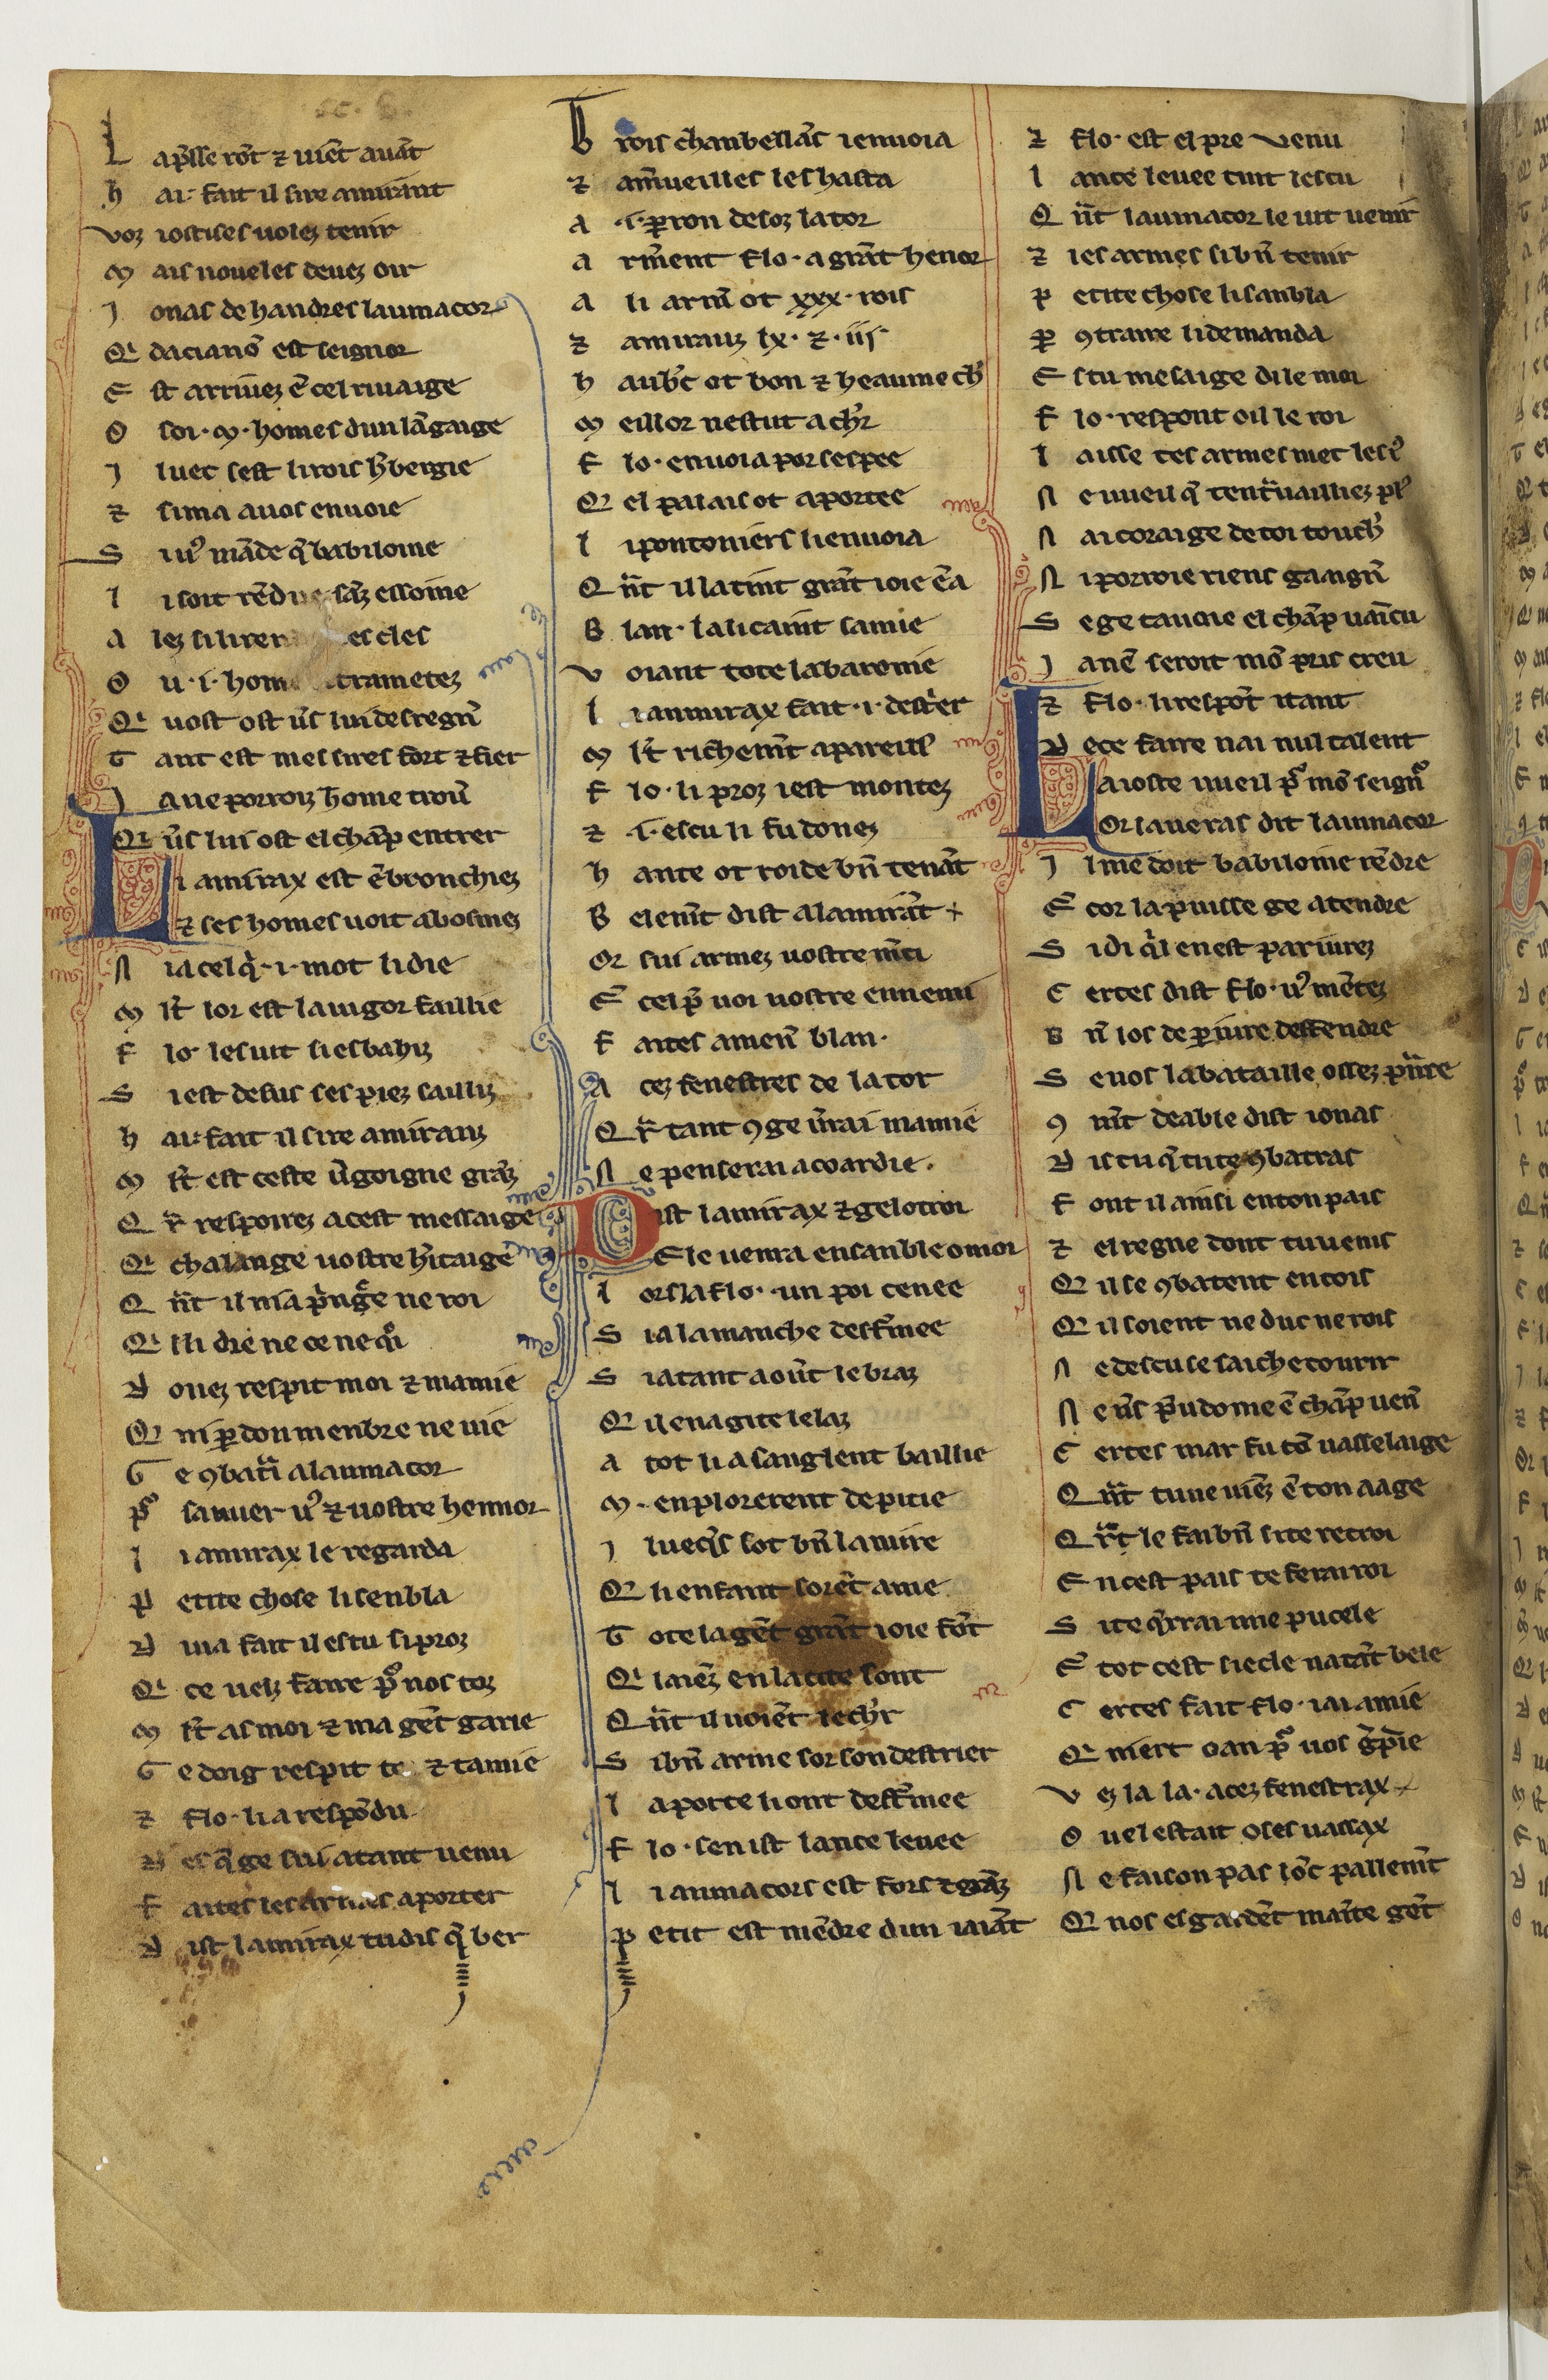 L ap̃sse rõt ⁊ uiẽt auãt
h ai· fait il sire amirant
voz iostises uolez tenir
M ais noueles deuez oir
J onas de handres laumacor
Q̓ dacianõ est seignor
E st arriuez ẽ cel riuaige
O soi· M· homes dun lãgaige
J luec sest li rois h̃bergie
⁊ si ma a uos enuoie
S i uꝰ mãde q̃ babiloine
l i soit rẽdue sãz essoine
a lez si liurer es cles
O u· i· hom trametez
Q̓ uost ost ũs lui desregñ
T ant est mes sires fort ⁊ fier
J a ne porroiz home trouũ
Q̓ ũs lui ost el chãp entrer
L i amirax est ẽbronchiez
⁊ ses homes uoit abosmez
N ia cel q̓· i· mot li die
M lt̃ lor est la uigor faillie
F lo· les uit si esbahiz
S i est desus ses piez sailliz
h ai· fait il sire amiranz
M lt̃ est ceste ũgoigne grãz
Q r̃ respoirez a cest messaige
Q̓ chalange uostre h̃itaige
Q ñt il ni a p̃nĝe ne roi
Q̓ lli die ne ce ne q̓i
D onez respit moi ⁊ mamie
Q̓ ni ꝑdon menbre ne uie
G e ꝯbatr̃i a laumacor
p̃ sauuer uꝰ ⁊ uostre hennor
l i amirax le regarda
P etite chose li senbla
D iua fait il es tu si proz
Q̓ ce uelz faire p̃ nos toz
M lt̃ as moi ⁊ ma gẽt garie
G e doig respit te ⁊ tamie
⁊ flo· li a respõdu
D es q̃ ge sui atant uenu
F aites les armes aporter
D ist lamirax tu dis q̃ ber
T rois chanbellãs i enuoia
⁊ am̃ueilles les hasta
a ·i· ꝑron desoz la tor
a rm̃ent flo· a grãt henor
a li arm̃ ot xxx· rois
⁊ amirauz lx· ⁊· iiſ·
h aub̃c ot bon ⁊ heaume ch̃
M eillor nestut a ch̃r
F lo· enuoia por sespee
Q̓ el palais ot aportee
l i pontoniers li enuoia
Q ñt il la tint grãt ioie ẽa
B lan· la li caint samie
v oiant tote la baronie
l i amirax fait ·i· dest̃er
M lt̃ richem̃t apareill̃
F lo· li proz i est montez
⁊ ·i· escu li fu donez
h ante ot roide bñ tenãt
B elem̃t dist a lamirãt +
Or sui armez uostre m̃ci
E cel p̃ uoi uostre ennemi
F aites amen̄ blan·
A cez fenestres de la tor
Q r̃ tant ꝯ ge ũrai mamie
N e penserai a coardie·
D ist lamirax ⁊ ge lotroi
E le uenra ensanble o moi
l ors la flo· un poi cenee
S i a la manche desfm̃ee
S i a tant aoũt le braz
Q̓ il en a gite le laz
a tot li a sanglent baillie
M· en plorerent de pitie
J luec q̓s sot bñ lamire
Q̓ li enfant sorẽt aime
T ote la gẽt grãt ioie fõt
Q̓ laiẽz en la cite sont
Q ñt il uoiẽt le ch̃r
S i bñ arme sor son destrier
l a porte li ont desfm̃ee
F lo· sen ist lance leuee
l i aumacors est fors ⁊ grãz
P etit est mẽdre dun iaiãt
⁊ flo· est el pre venu
l ance leuee tint lescu
Q ñt laumacor le uit uenir
⁊ les armes si bñ tenir
P etite chose li sanbla
P ꝯtraire li demanda
E s tu mesaige di le moi
F lo· respont oil le roi
l aisse tes armes met les iꝰ
N e uueil q̃ tent̃uailliez plꝰ
N ai coraige de toi touch̃
N i porroie riens gaaign̄
S e ge tauoie el chãp uaĩcu
J a nẽ seroit mõ pris creu
⁊ flo· li respõt itant
D e ce faire nai nul talent
L a ioste uueil p̃ mõ seign̄
Or laueras dit laumacor
J l me doit babiloine rẽdre
E cor la puisse ge atendre
S i di q̓l en est pariurez
C ertes dist flo· uꝰ mẽtez
B ñ los de ꝑiure deffendre
S e uos la bataille ossez p̃ñre
ꝯ m̃t deable dist ionas
D is tu q̃ tu te ꝯbatras
F ont il ainsi en ton pais
⁊ el regne dont tu uenis
Q̓ il se ꝯbatent en tois
Q̓ il soient ne duc ne rois
N e descu se saiche courir
N e ũs p̃udome ẽ chãp uen̄
C ertes mar fu tõ uasselaige
Q ñt tu ne uiẽz ẽ ton aage
Q r̃t le fai bñ si te retroi
E n cest pais te ferai roi
S i te q̃rrai une pucele
E tot cest siecle na tãt bele
C ertes fait flo· iai amie
Q̓ niert oan p̃ uos g̃pie
v ez la la· a cez fenestrax
O uel estait o ses uassax
N e faison pas lõc pallem̃t
Q̓ nos esgardẽt mainte gẽt